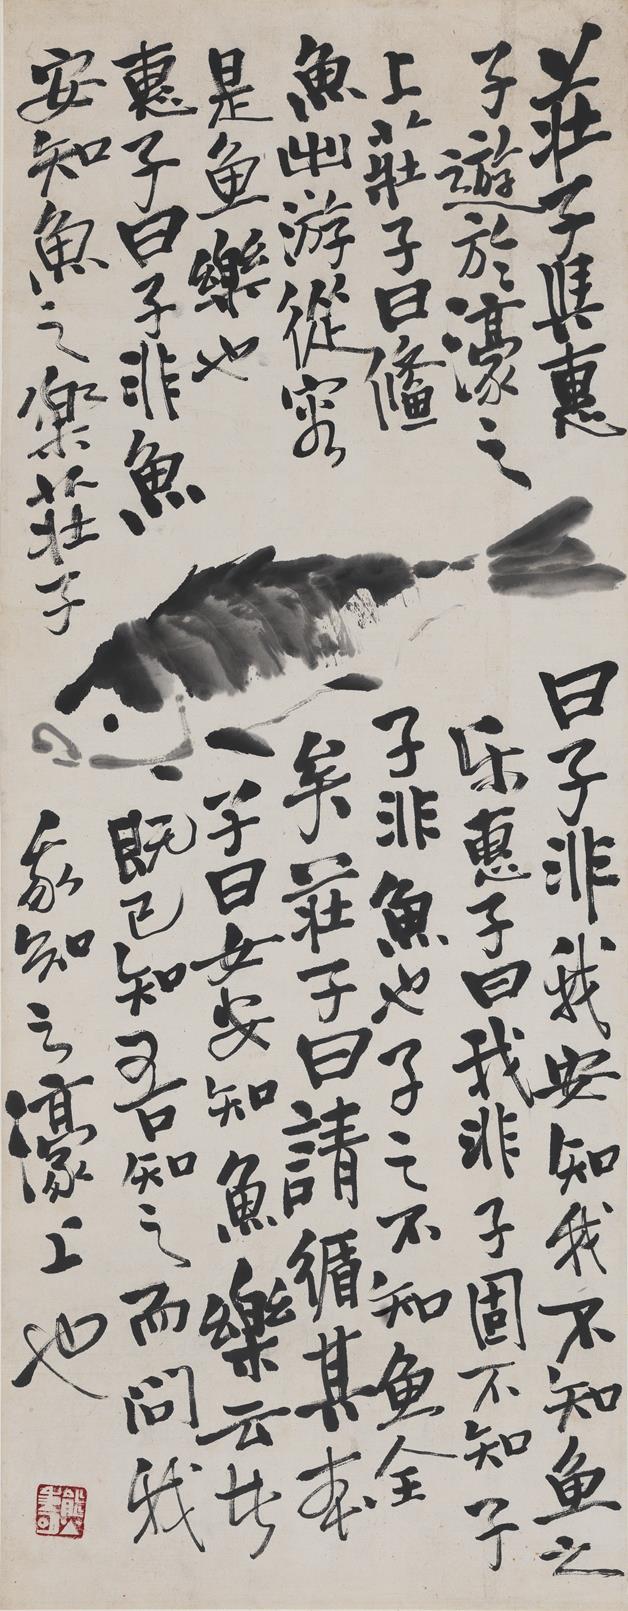 莊子與惠
子遊於濠之
上莊子曰鯈
魚出游從容
是鱼樂也
惠子曰子非魚
安知魚之樂莊子
曰子非我安知我不知鱼之
乐惠子曰我非子固不知子
子非魚也子之不知鱼全
矣莊子曰請循其本
子曰女安知魚樂云者
既已知吾知之而问我
我知之濠上也